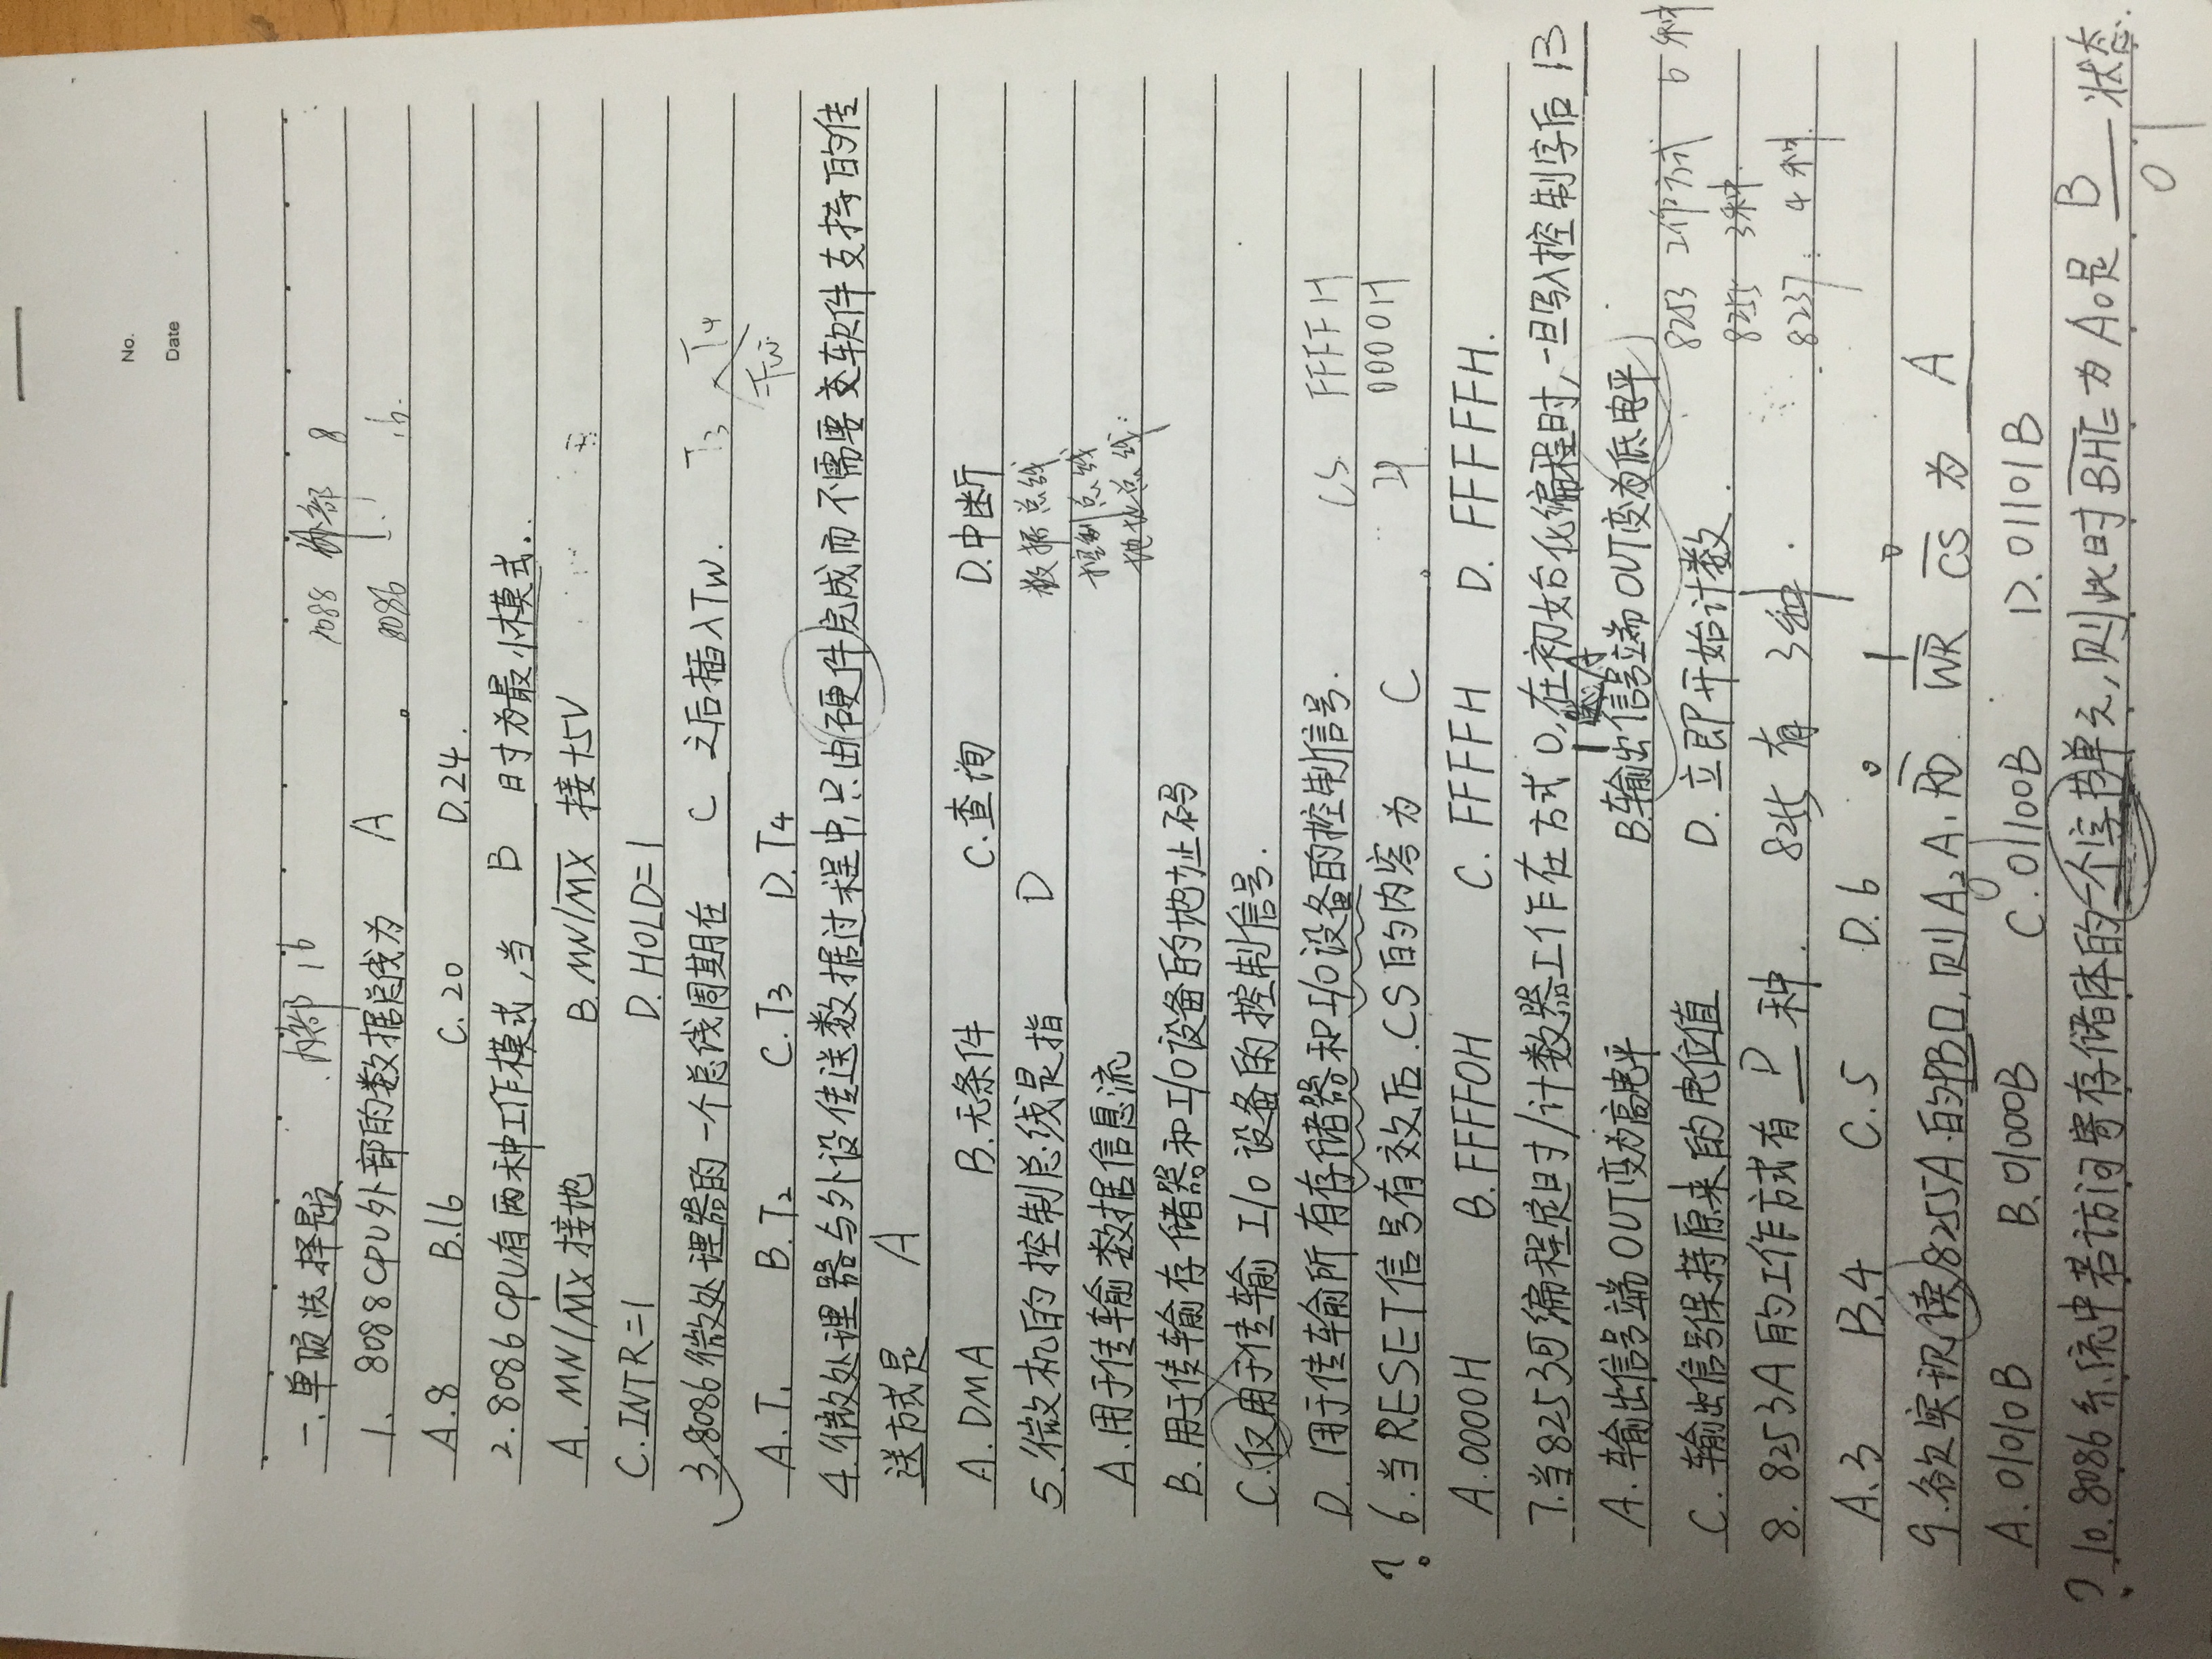 No.
Date
一.单项选择题 内部 16 8088 外部 8
1、8088CPU外部的数据总线为 A 。 8086 16.
A.8 B.16 C.20 D.24.
2.8086CPU有两种工作模式,当 B 时为最小模式.
A. MN/M̅X̅ 接地 B. MN/M̅X̅ 接+5V
C.INTR=1 D. HOLD=1
3.8086微处理器的一个总线周期在 C 之后插入TW. T3 T4
Tw
A.T1 B.T2 C.T3 D.T4
4.微处理器与外设传送数据过程中,只由硬件完成而不需要变软件支持的传
送方式是 A
A.DMA B.无条件 C.查询 D.中断
5.微机的控制总线是指 D 数据总线
控制总线
A.用于传输数据信息流 地址总线
B.用于传输存储器和I/O设备的地址码
C.仅用于传输 I/O 设备的控制信号.
D. 用于传输所有存储器和I/O设备的控制信号. CS FFFFH
? 6.当RESET信号有效后.CS的内容为 C 。 IP 0000H
A.0000H B.FFFF0H C. FFFFH D. FFFFFH.
7.当8253可编程定时/计数器工作在方式0,在初始化编程时,一旦写入控制字后 B
1 选A
A.输出信号端OUT变为高电平 B.输出信号端OUT变为低电平
C.输出信号保持原来的电位值 D.立即开始计数. 8253 工作方式 6种
8255 3种
8. 8253A的工作方式有 D 种. 8255 有 3种. 8237: 4种
A.3 B.4 C.5 D.6
0 1 0
9.欲实现读8255A的PB口,则A2A1 R̅D̅ W̅R̅ C̅S̅ 为 A
0 1
A.01010B B.01000B C.01100B D.01101B
? 10.8086系统中若访问寄存储体的一个字节单元,则此时B̅H̅E̅为A0是 B 状态.
0 1